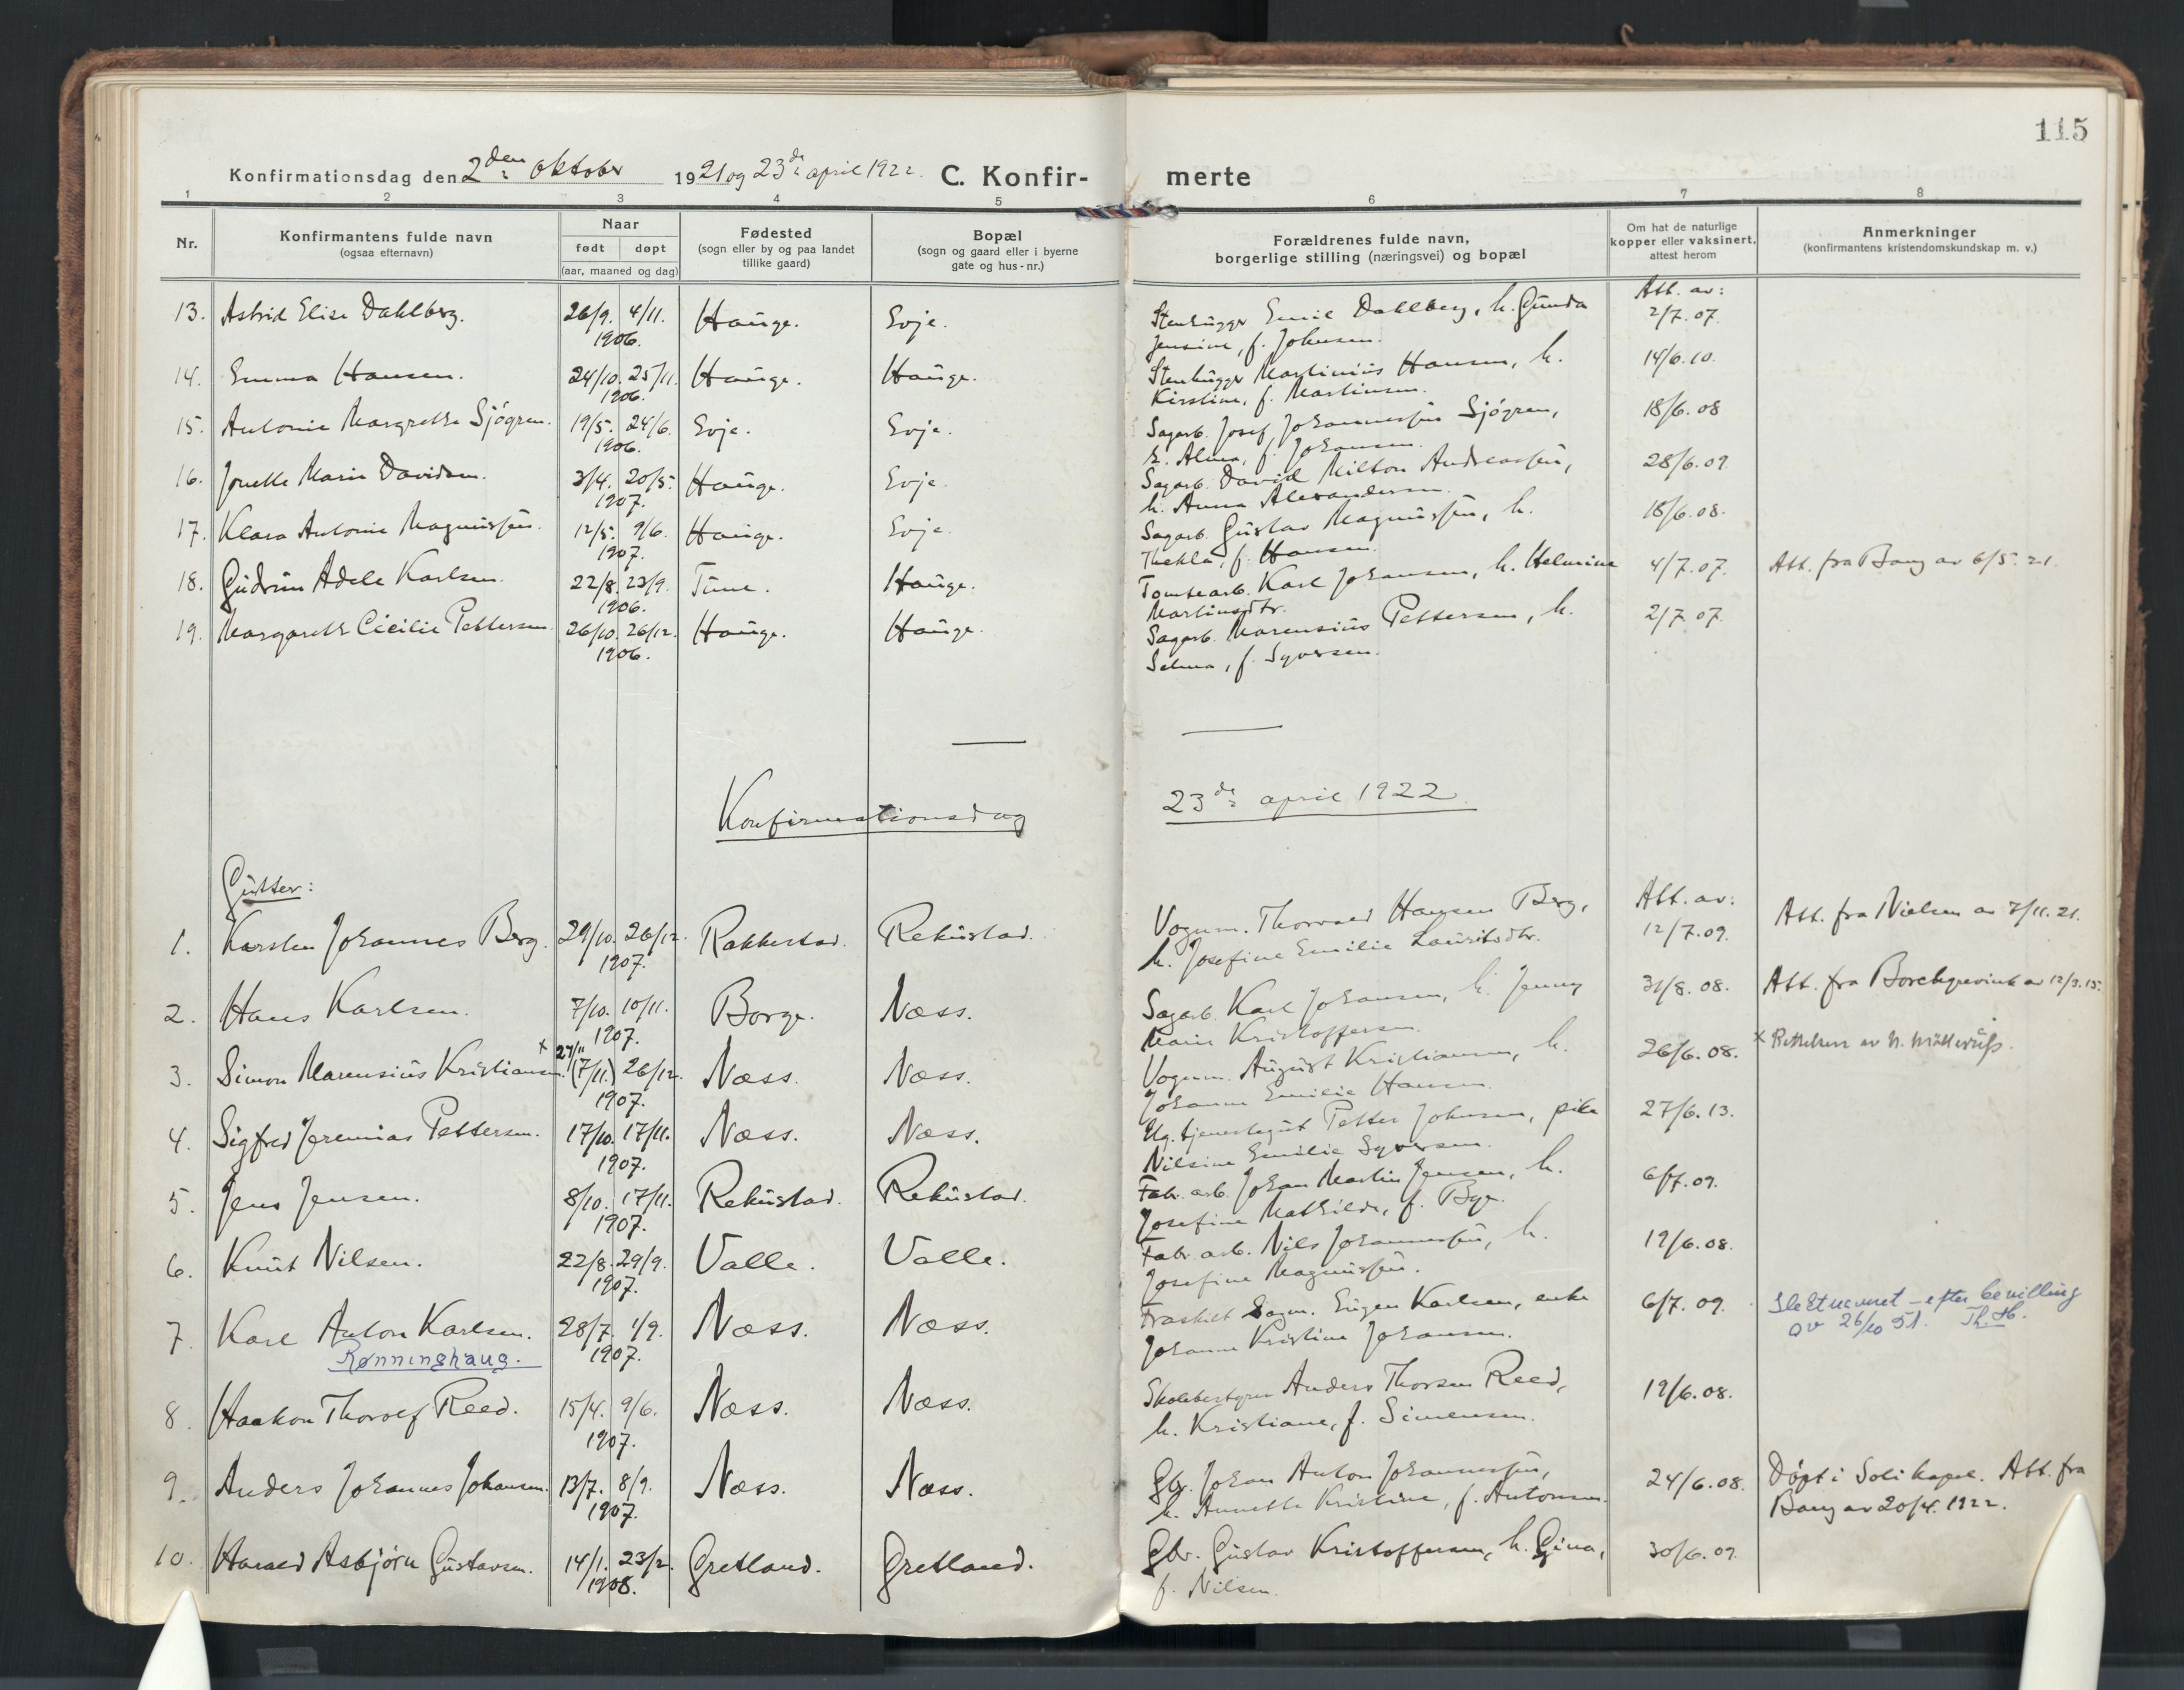 115
Konfirmationsdag den 2den oktober 1921 og 23de april 1922. C. Konfirmerte
1 2 3 4 5 6 7 8
Nr. Konfirmantens fulde navn (ogsaa efternavn) Naar født døpt (aar, maaned og dag) Fødested (sogn eller by og paa landet tillike gaard) Bopæl (sogn og gaard eller i byerne gate og hus-nr.) Forældrenes fulde navn, borgerlige stilling (næringsvei) og bopæl Om hat de naturlige kopper eller vaksinert, attest herom Anmerkninger (konfirmantens kristendomskundskap m. v.)
Att. av:
13. Astrid Elise Dahlberg. 26/9. 4/11. 1906. Hauge. Evje. Stenhugger Emil Dahlberg, h. Gunda 2/7. 07.
Jensine, f. Johnsen.
14. Emma Hansen. 24/10. 25/11. 1906. Hauge. Hauge. Stenhugger Martinius Hansen, h. 14/6. 10.
Kirstine, f. Martinsen.
15. Antonie Margrethe Sjögren. 19/5. 24/6. 1906. Evje. Evje. Sagarb. Josef Johannessen Sjögren, 18/6. 08
h. Alma, f. Johansen.
16. Jonette Marie Davidsen. 3/4. 20/5. 1907. Hauge. Evje. Sagarb. David Milton Andreassen, 28/6. 09.
h. Anna Alexandersen.
17. Klara Antonie Magnussen. 12/5. 9/6. 1907. Hauge. Evje. Sagarb. Gustav Magnussen, h. 18/6. 08.
Thekla, f. Hansen.
18. Gudrun Adele Karlsen. 22/8. 23/9. 1906. Tune. Hauge. Tomtearb. Karl Johansen, h. Helmine 4/7. 07. Att. fra Bang av 6/5. 21.
Martinsdtr.
19. Margarethe Cicilie Pettersen. 26/10. 26/12. 1906. Hauge. Hauge. Sagarb. Marensius Pettersen, h. 2/7. 07.
Selma, f. Syversen.
Konfirmationsdag 23de april 1922.
Gutter: Att. av:
1. Karsten Johannes Berg. 29/10. 26/12. 1907. Rakkestad. Rekustad. Vognm. Thorvald Hansen Berg, 12/7. 09. Att. fra Nielsen av 7/11. 21.
h. Josefine Emilie Lauritsdtr.
2. Hans Karlsen. 7/10. 10/11. 1907. Borge. Næss. Sagarb. Karl Johansen, h. Jenny 31/8. 08. Att. fra Borchgrevink av 12/3. 15.
Marie Kristoffersen.
3. Simon Marensius Kristiansen. x 27/11 (7/11.) 26/12. 1907. Næss. Næss. Vognm. August Kristiansen, h. 26/6. 08. x Rettelsen av
Johanne Emilie Hansen.
4. Sigfred Jeremias Pettersen. 17/10. 17/11. 1907. Næss. Næss. Ug. tjenestegut Petter Johnsen, pike 27/6. 13.
Nilsine Emilie Syversen.
5. Jens Jensen. 8/10. 17/11. 1907. Rekustad. Rekustad. Fabr. arb. Johan Martin Jensen, h. 6/7. 09.
Josefine Mathilde, f. Bye.
6. Knut Nilsen. 22/8. 29/9. 1907. Valle. Valle. Fabr. arb. Nils Johannessen, h. 19/6. 08.
Josefine Magnussen.
7. Karl Anton Karlsen. 28/7. 1/9. 1907. Næss. Næss. Fraskilt Sagm. Eugen Karlsen, enke 6/7. 09. Slektnavnet - efter bevilling
Rønninghaug. Johanne Kristine Johansen. av 26/10 51. Th. H.
8. Haakon Thorolf Reed. 15/4. 9/6. 1907. Næss. Næss. Skolebestyrer Anders Thorsen Reed, 19/6. 08.
h. Kristiane, f. Simensen.
9. Anders Johannes Johansen. 13/7. 8/9. 1907. Næss. Næss. Gbr. Johan Anton Johannessen, 24/6. 08. Döpt i Soli kapel. Att. fra
h. Annette Kristine, f. Antonsen. Bang av 20/4. 1922.
10. Harald Asbjörn Gustavsen. 14/1. 23/2. 1908. Gretland. Gretland. Gbr. Gustav Kristoffersen, h. Gina, 30/6. 09.
f. Nilsen.